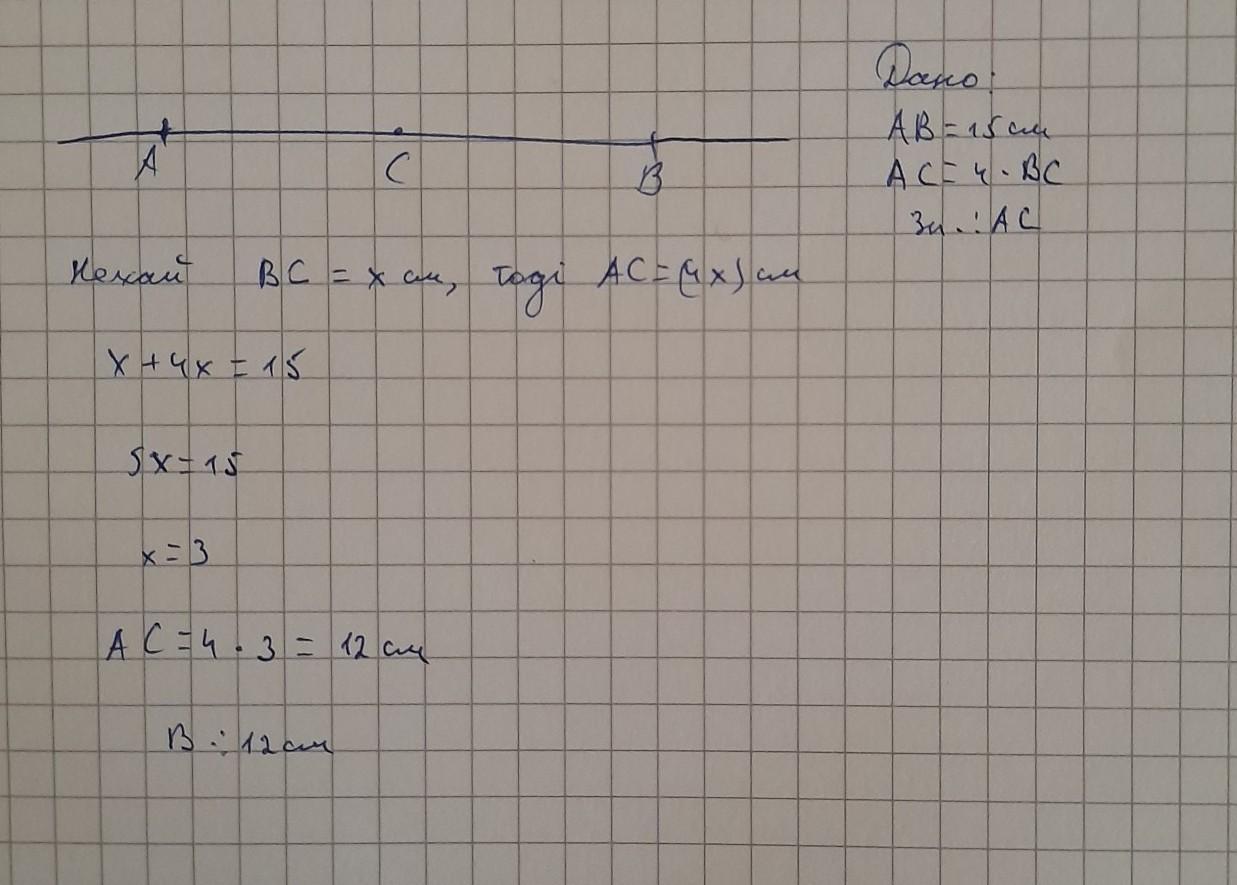 Дано:
AB = 15 см
AC = 4 · BC
Зн.: AC
A C B
Нехай BC = x см, тоді AC = (4x) см
x + 4x = 15
5x = 15
x = 3
AC = 4 · 3 = 12 см
В.: 12 см